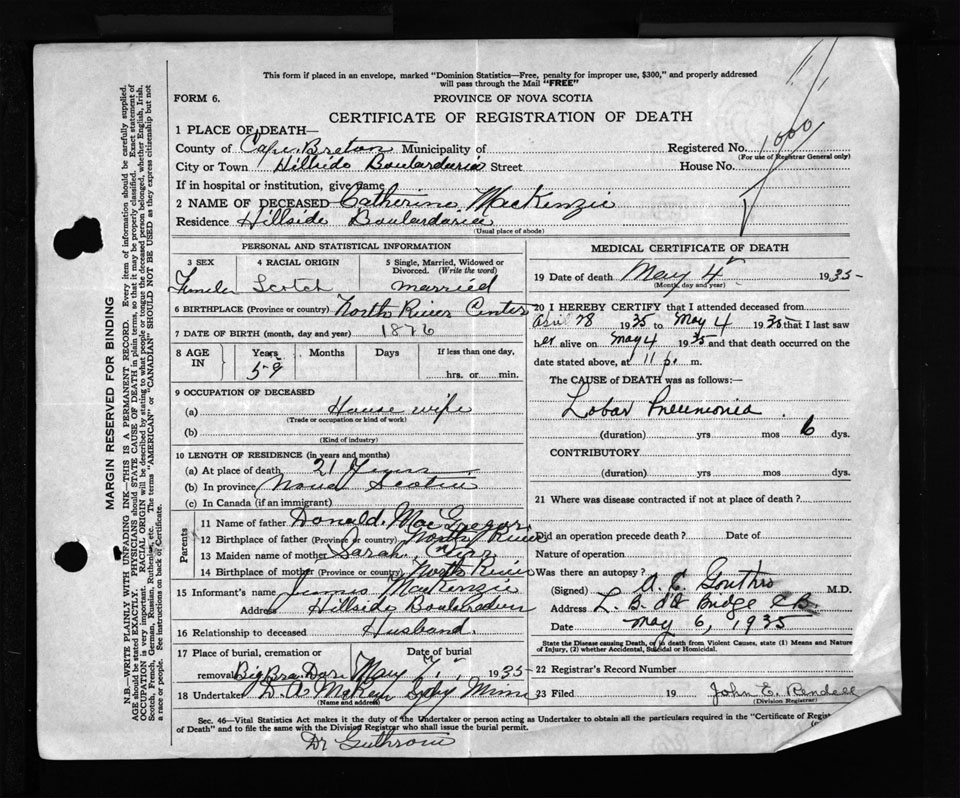 This form if placed in an envelope, marked "Dominion Statistics—Free, penalty for improper use, $300," and properly addressed
will pass through the Mail "FREE"
FORM 6.
PROVINCE OF NOVA SCOTIA
CERTIFICATE OF REGISTRATION OF DEATH
1 PLACE OF DEATH—
County of Cape Breton Municipality of
Registered No. 1000
(For use of Registrar General only)
City or Town Hillside Boulardarie Street House No.
If in hospital or institution, give name
2 NAME OF DECEASED Catherine MacKenzie
Residence Hillside Boulardarie
(Usual place of abode)
PERSONAL AND STATISTICAL INFORMATION
3 SEX 4 RACIAL ORIGIN 5 Single, Married, Widowed or Divorced. (Write the word)
Female Scotch married
6 BIRTHPLACE (Province or country) North River Center
7 DATE OF BIRTH (month, day and year) 1876
8 AGE IN Years Months Days If less than one day,
59 hrs. or min.
9 OCCUPATION OF DECEASED
(a) House wife
(Trade or occupation or kind of work)
(b)
(Kind of industry)
10 LENGTH OF RESIDENCE (in years and months)
(a) At place of death 21 Years
(b) In province Nova Scotia
(c) In Canada (if an immigrant)
Parents
11 Name of father Donald MacGregor
12 Birthplace of father (Province or country) North River
13 Maiden name of mother Sarah
14 Birthplace of mother (Province or country) North River
15 Informant's name James MacKenzie
Address Hillside Boulardarie
16 Relationship to deceased Husband.
17 Place of burial, cremation or removal Date of burial
Big Bras Dor. May 7, 1935
18 Undertaker D. A. McKay Sydney Mines
(Name and address)
MEDICAL CERTIFICATE OF DEATH
19 Date of death May 4 1935
(Month, day and year)
20 I HEREBY CERTIFY that I attended deceased from
April 28 1935 to May 4 1935 that I last saw
her alive on May 4 1935 and that death occurred on the
date stated above, at 11 p. m.
The CAUSE of DEATH was as follows:—
Lobar Pneumonia.
(duration) yrs mos 6 dys.
CONTRIBUTORY
(duration) yrs mos dys.
21 Where was disease contracted if not at place of death?
Did an operation precede death? Date of
Nature of operation
Was there an autopsy?
(Signed) A. E. Gouthro M.D.
Address L. B. d'Or Bridge C.B.
Date May 6, 1935
State the Disease causing Death, or in death from Violent Causes, state (1) Means and Nature
of Injury, (2) whether Accidental, Suicidal or Homicidal.
22 Registrar's Record Number
23 Filed 19 John E. Rendell
(Division Registrar)
Sec. 46—Vital Statistics Act makes it the duty of the Undertaker or person acting as Undertaker to obtain all the particulars required in the "Certificate of
of Death" and to file the same with the Division Registrar who shall issue the burial permit.
Dr
MARGIN RESERVED FOR BINDING
N.B.—WRITE PLAINLY WITH UNFADING INK—THIS IS A PERMANENT RECORD. Every item of information should be carefully supplied.
AGE should be stated EXACTLY. PHYSICIANS should STATE CAUSE OF DEATH in plain terms, so that it may be properly classified. Exact statement of
OCCUPATION is very important. RACIAL ORIGIN will be described by stating to what people or tongue the deceased person belonged, whether English, Irish,
Scotch, French, German, Russian, Ruthenian, etc. The terms "AMERICAN" or "CANADIAN" SHOULD NOT BE USED as they express citizenship but not
a race or people. See instructions on back of Certificate.